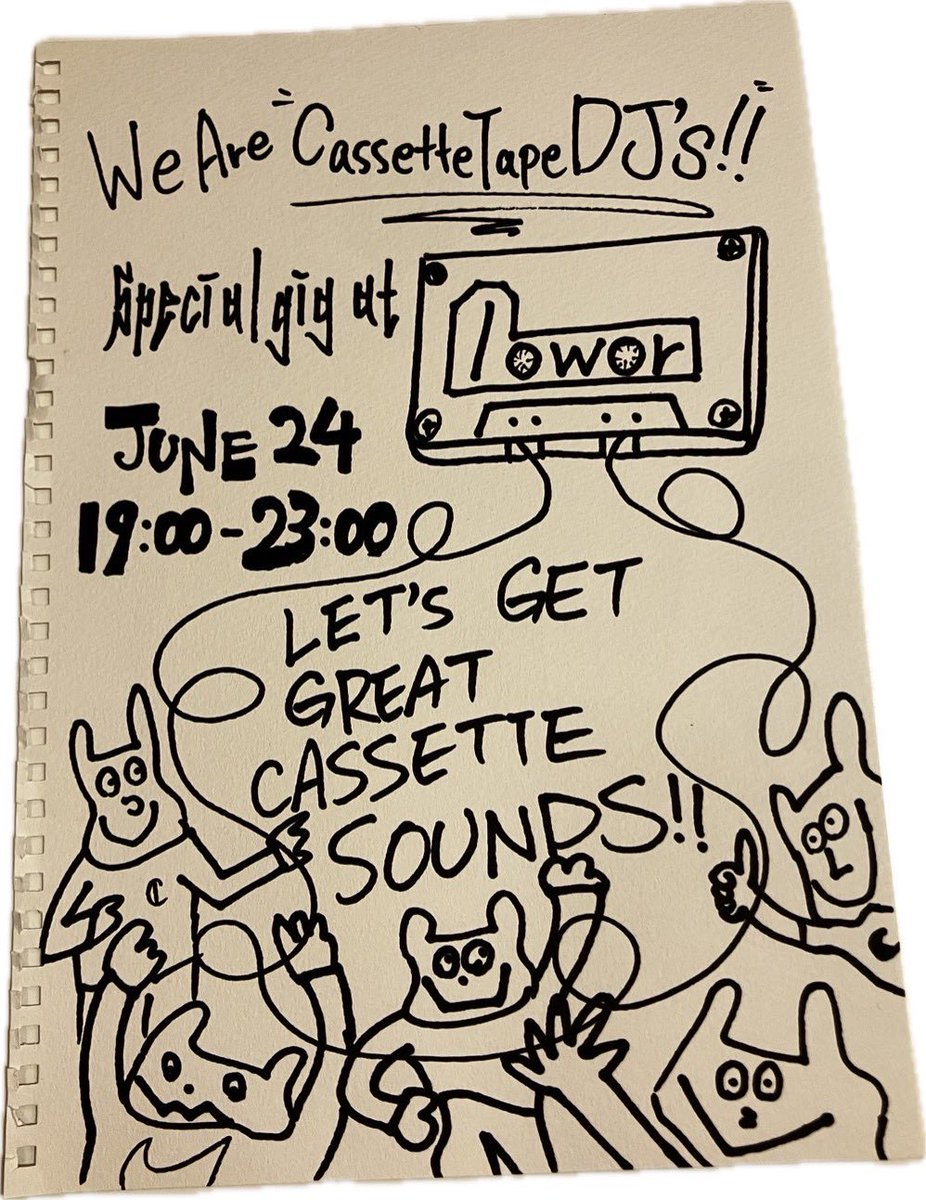 We Are "Cassette Tape DJ's!!"
Special gig at
lowor
JUNE 24
19:00-23:00
LET'S GET
GREAT
CASSETTE
SOUNDS!!
C